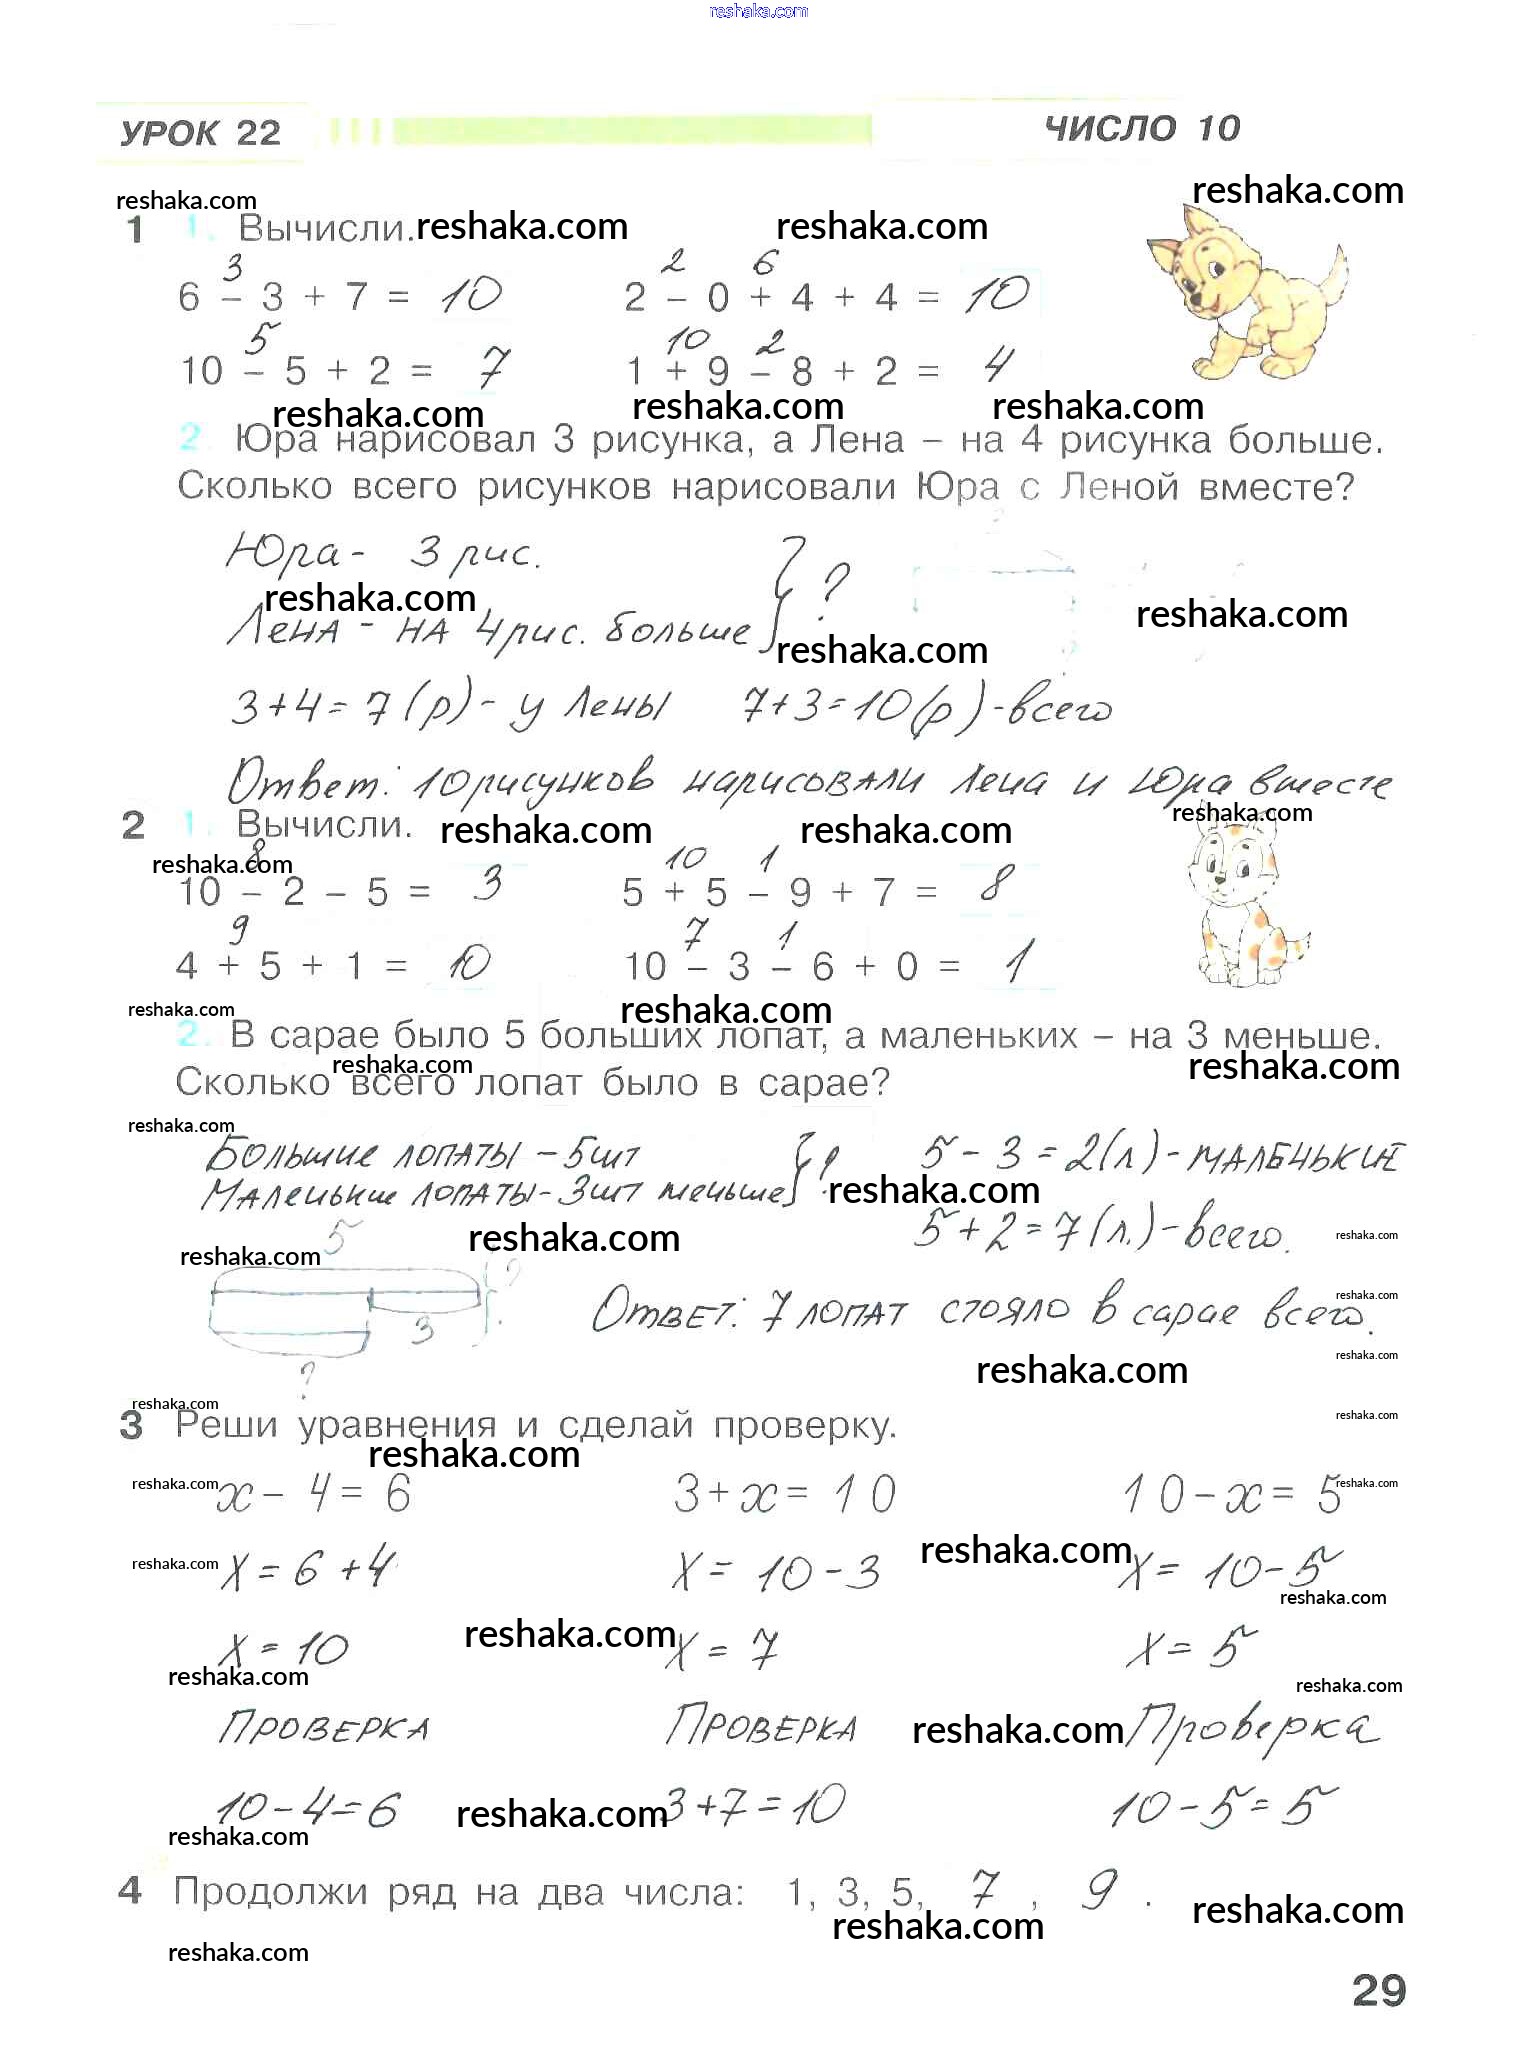 reshaka.com
УРОК 22 ЧИСЛО 10
reshaka.com reshaka.com
1 1. Вычисли. reshaka.com reshaka.com
3 2 6
6 - 3 + 7 = 10 2 - 0 + 4 + 4 = 10
5 10 2
10 - 5 + 2 = 7 1 + 9 - 8 + 2 = 4
reshaka.com reshaka.com reshaka.com
2. Юра нарисовал 3 рисунка, а Лена – на 4 рисунка больше.
Сколько всего рисунков нарисовали Юра с Леной вместе?
Юра - 3 рис. } ?
reshaka.com reshaka.com
Лена - на 4 рис. больше
reshaka.com
3+4=7(р)- у Лены 7+3=10(р)-всего
Ответ: 10 рисунков нарисовали Лена и Юра вместе
reshaka.com
2 1. Вычисли. reshaka.com reshaka.com
reshaka.com
8 10 1
10 - 2 - 5 = 3 5 + 5 - 9 + 7 = 8
9 7 1
4 + 5 + 1 = 10 10 - 3 - 6 + 0 = 1
reshaka.com reshaka.com
2. В сарае было 5 больших лопат, а маленьких – на 3 меньше.
reshaka.com reshaka.com
Сколько всего лопат было в сарае?
reshaka.com
Большие лопаты - 5шт } ? 5 - 3 = 2(л)-малБнькие
Маленькие лопаты - 3шт меньше reshaka.com
5 + 2 = 7(л.)-всего.
5 reshaka.com reshaka.com
reshaka.com
? reshaka.com
3 Ответ: 7 лопат стояло в сарае всего.
reshaka.com reshaka.com
?
reshaka.com reshaka.com
3 Реши уравнения и сделай проверку.
reshaka.com
reshaka.com x - 4 = 6 3 + x = 10 10 - x = 5 reshaka.com
reshaka.com x = 6 + 4 x = 10 - 3 reshaka.com x = 10 - 5
reshaka.com
x = 10 reshaka.com x = 7 x = 5
reshaka.com reshaka.com
Проверка Проверка reshaka.com Проверка
10-4=6 reshaka.com 3+7=10 10-5=5
reshaka.com
4 Продолжи ряд на два числа: 1, 3, 5, 7 , 9 .
reshaka.com reshaka.com
reshaka.com
29